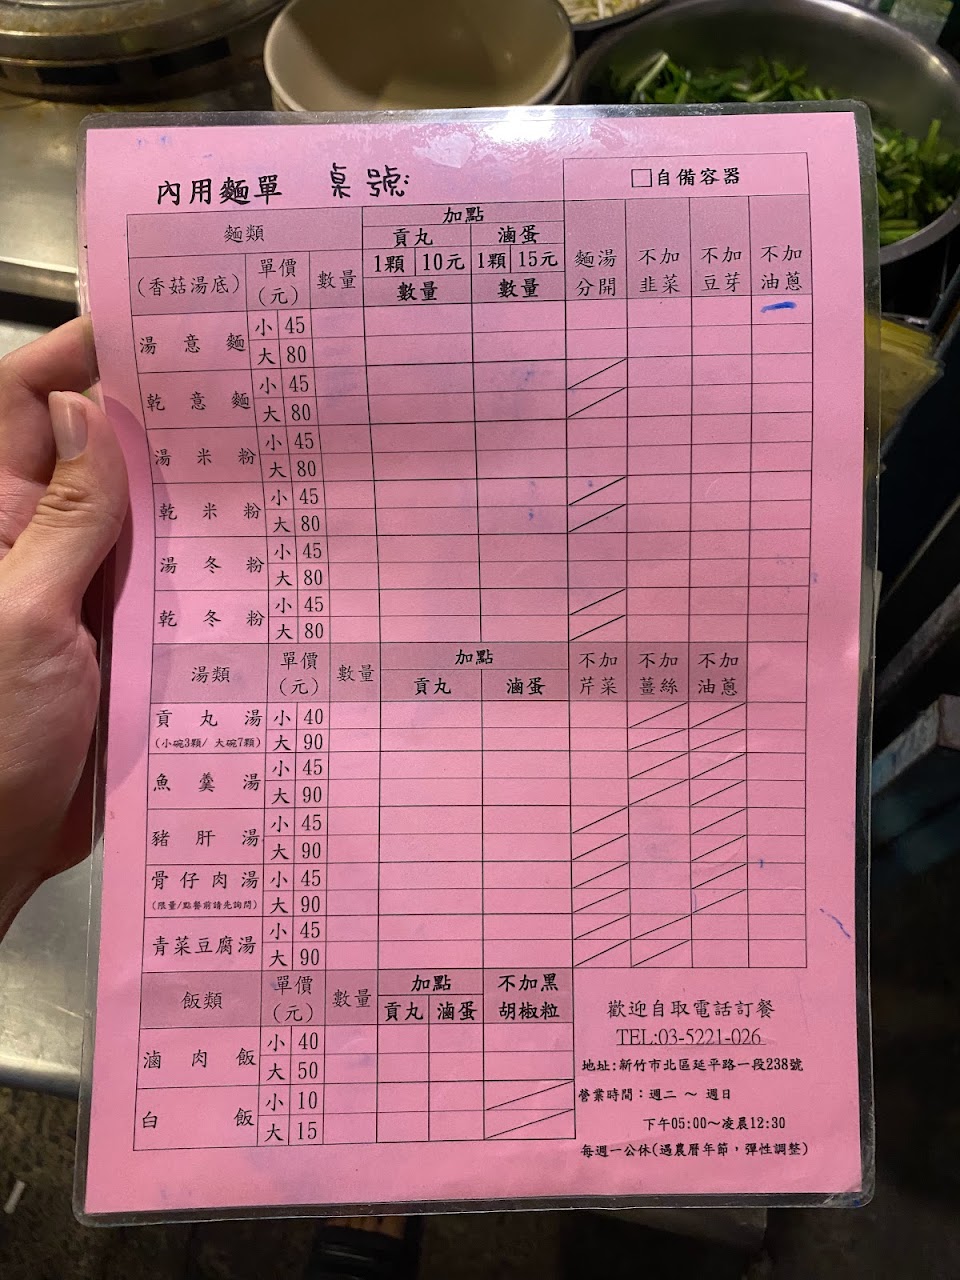 內用麵單 桌號:
□自備容器
麵類 加點 麵湯分開 不加韭菜 不加豆芽 不加油蔥
貢丸 滷蛋
(香菇湯底) 單價(元) 數量 1顆 10元 1顆 15元
數量 數量
湯意麵 小 45
大 80
乾意麵 小 45
大 80
湯米粉 小 45
大 80
乾米粉 小 45
大 80
湯冬粉 小 45
大 80
乾冬粉 小 45
大 80
湯類 單價(元) 數量 加點 不加芹菜 不加薑絲 不加油蔥
貢丸 滷蛋
貢丸湯 小 40
(小碗3顆/大碗7顆) 大 90
魚羹湯 小 45
大 90
豬肝湯 小 45
大 90
骨仔肉湯 小 45
(限量/點餐前請先詢問) 大 90
青菜豆腐湯 小 45
大 90
飯類 單價(元) 數量 加點 不加黑胡椒粒
貢丸 滷蛋
滷肉飯 小 40
大 50
白飯 小 10
大 15
歡迎自取電話訂餐
TEL:03-5221-026
地址:新竹市北區延平路一段238號
營業時間:週二 ~ 週日
下午05:00~凌晨12:30
每週一公休(遇農曆年節,彈性調整)